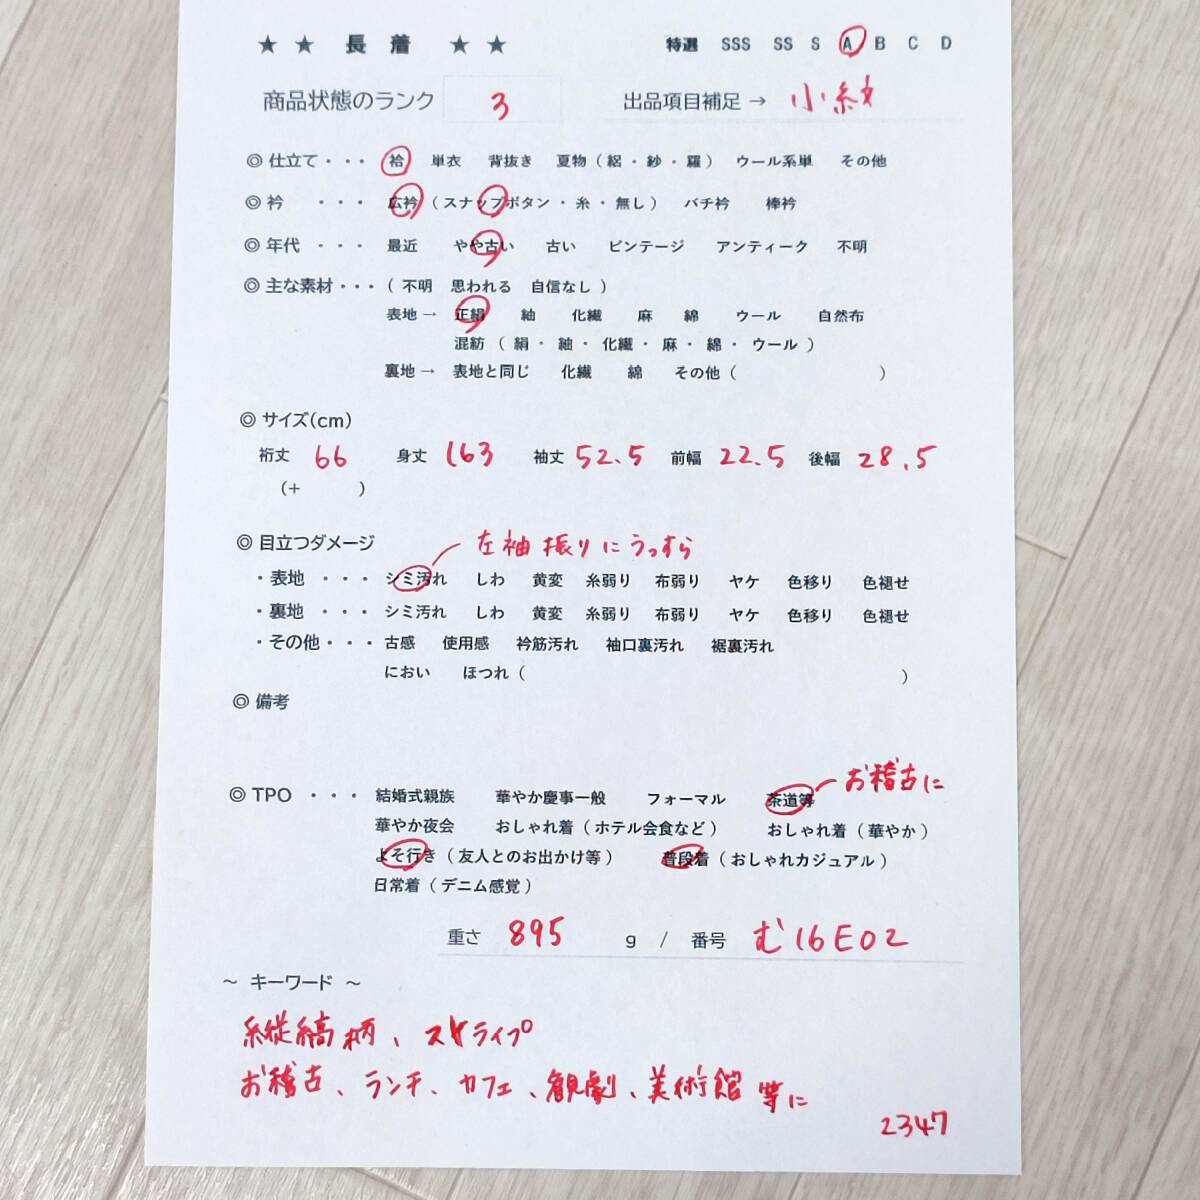 ★ ★ 長 着 ★ ★ 特選 SSS SS S A B C D
商品状態のランク 3 出品項目補足 → 小紋
◎ 仕立て・・・ 袷 単衣 背抜き 夏物（絽・紗・羅） ウール系単 その他
◎ 衿 ・・・ 広衿（スナップボタン・糸・無し） バチ衿 棒衿
◎ 年代 ・・・ 最近 やや古い 古い ビンテージ アンティーク 不明
◎ 主な素材・・・（ 不明 思われる 自信なし ）
表地 → 正絹 紬 化繊 麻 綿 ウール 自然布
混紡（ 絹・ 紬・化繊・麻・綿・ ウール ）
裏地 → 表地と同じ 化繊 綿 その他（ ）
◎ サイズ(cm)
裄丈 66 身丈 163 袖丈 52.5 前幅 22.5 後幅 28.5
（+ ）
◎ 目立つダメージ 左袖振りにうっすら
・表地 ・・・ シミ汚れ しわ 黄変 糸弱り 布弱り ヤケ 色移り 色褪せ
・裏地 ・・・ シミ汚れ しわ 黄変 糸弱り 布弱り ヤケ 色移り 色褪せ
・その他・・・ 古感 使用感 衿筋汚れ 袖口裏汚れ 裾裏汚れ
におい ほつれ（ ）
◎ 備考
お稽古に
◎ TPO ・・・ 結婚式親族 華やか慶事一般 フォーマル 茶道等
華やか夜会 おしゃれ着（ホテル会食など） おしゃれ着（華やか）
よそ行き（友人とのお出かけ等） 普段着（おしゃれカジュアル）
日常着（デニム感覚）
重さ 895 g / 番号 む16E02
～ キーワード ～
縦縞柄、ストライプ
お稽古、ランチ、カフェ、観劇、美術館 等に
2347